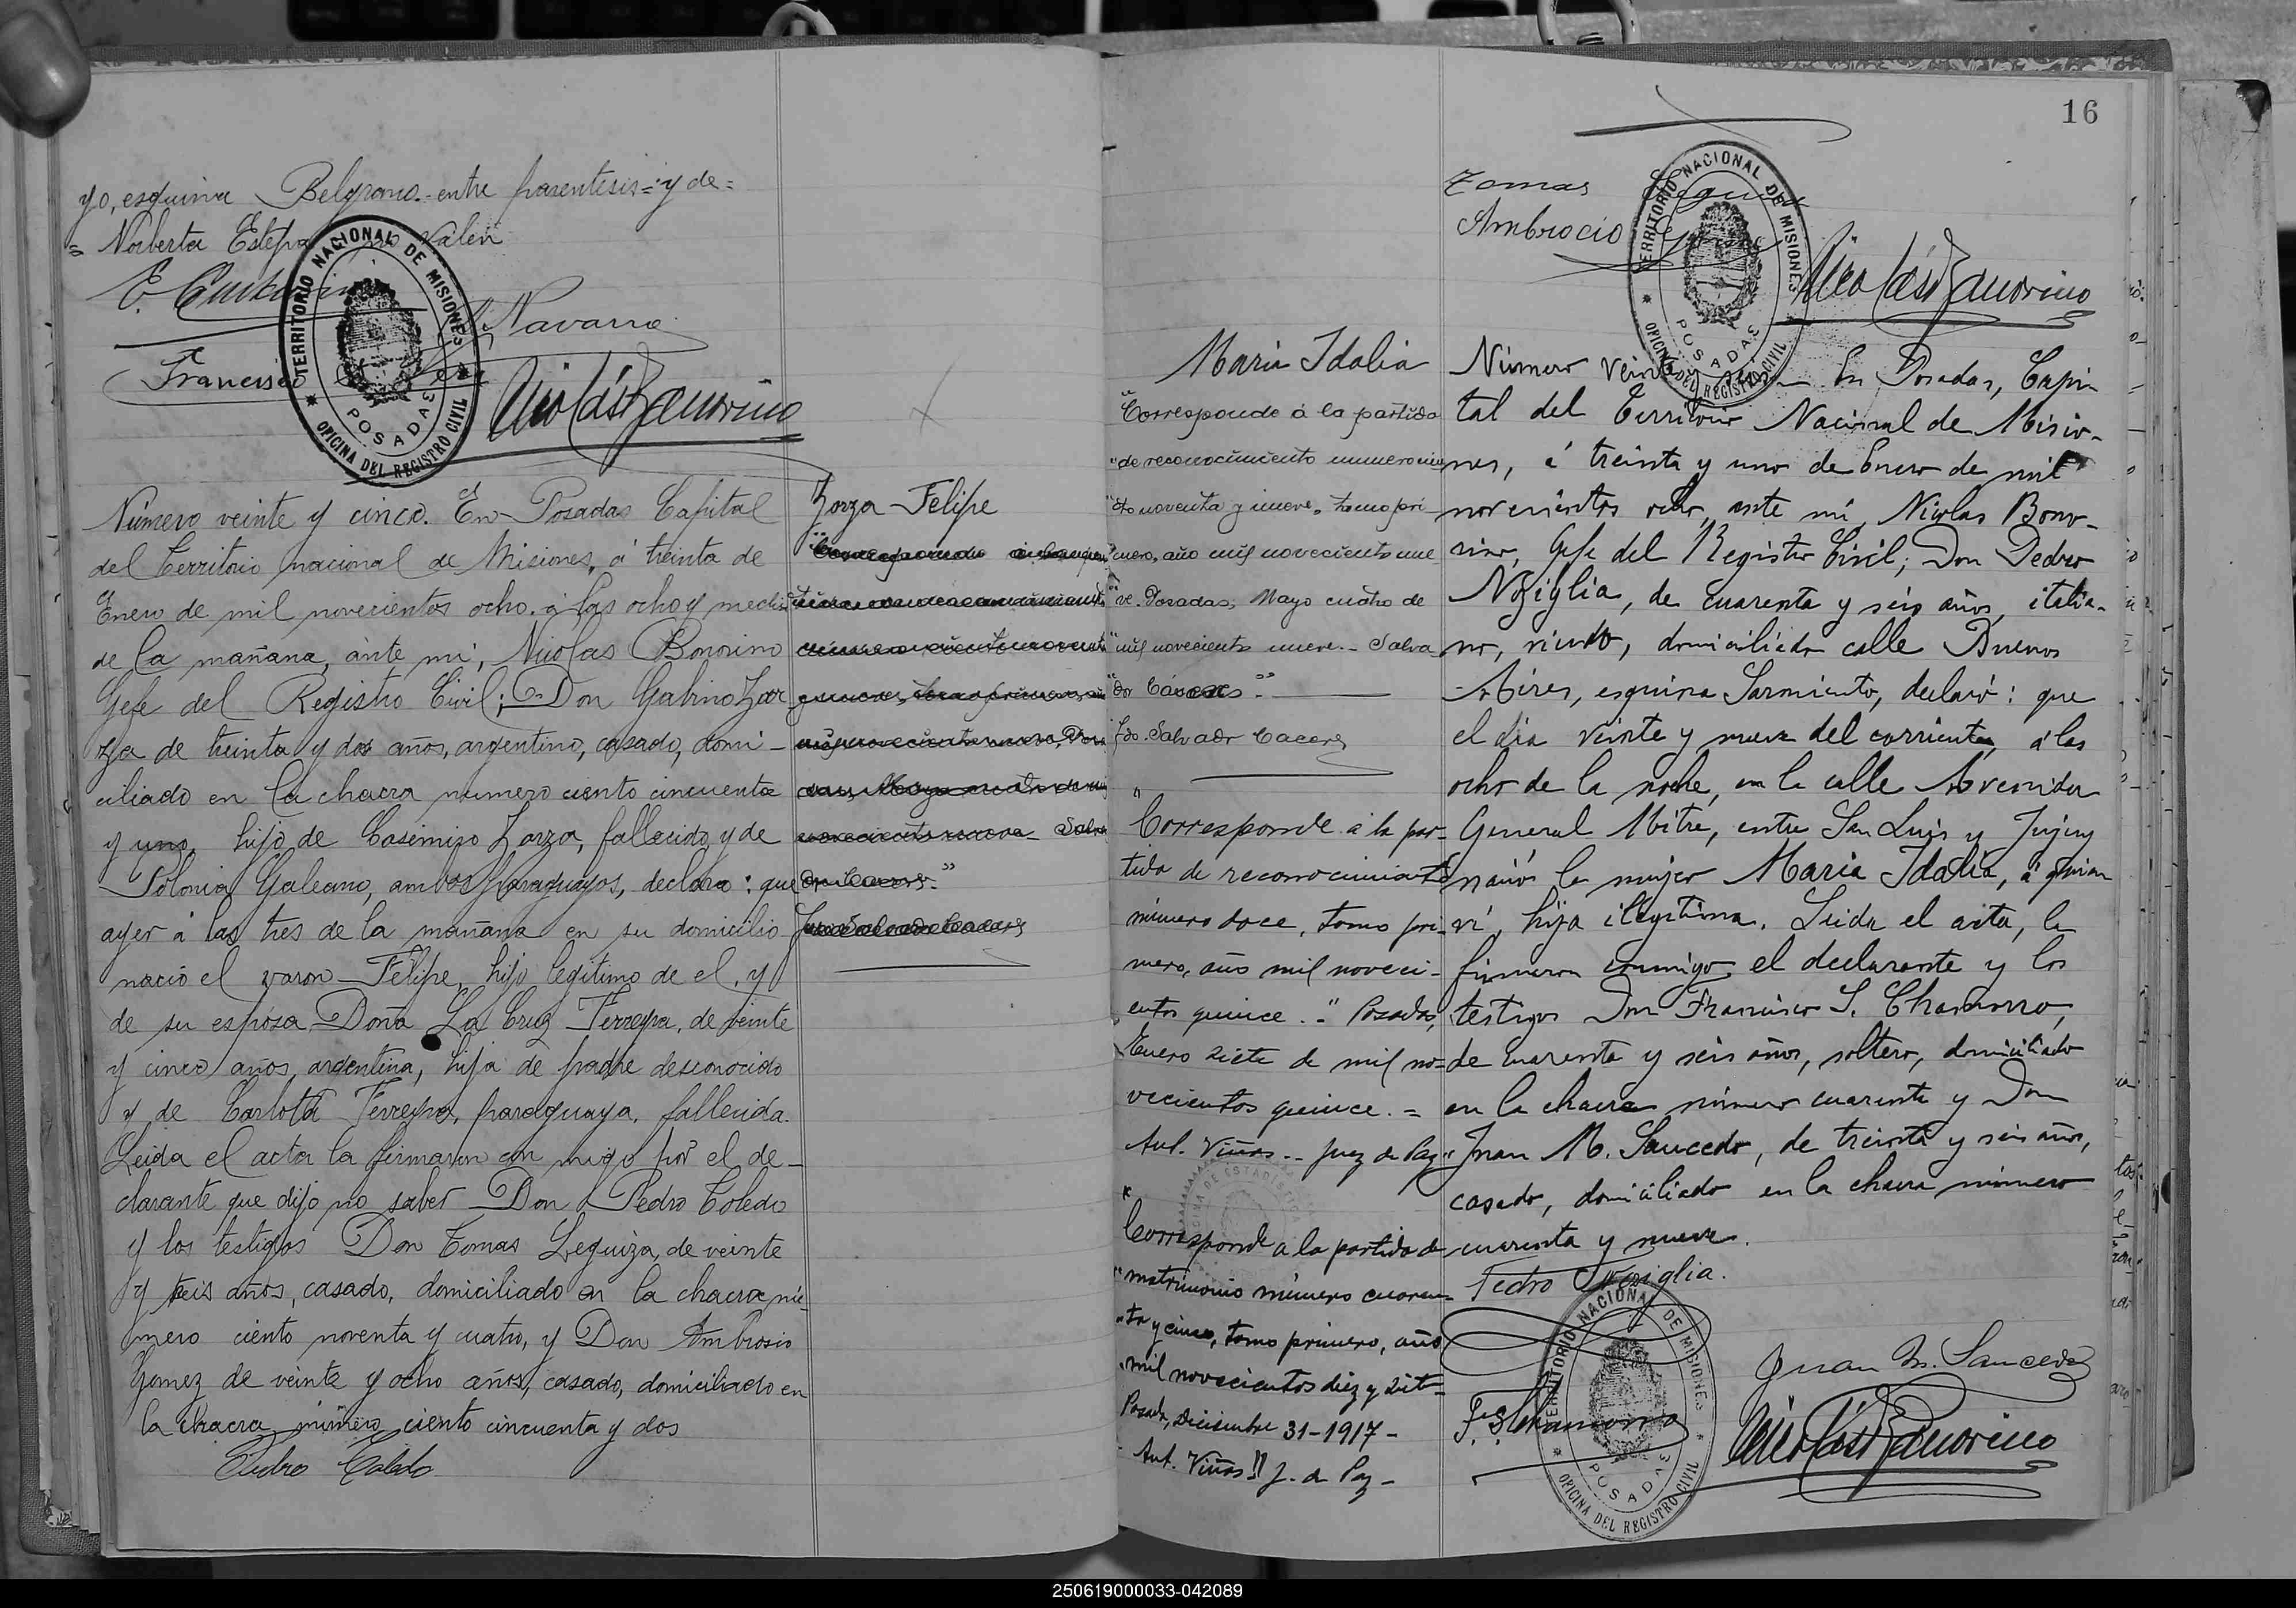 yo, esquina Belgrano. entre parentesis = y de =
= Norberta
Navarro
Francisco
Nicolás Bonorino
TERRITORIO NACIONAL DE MISIONES
OFICINA DEL REGISTRO CIVIL
POSADAS
Número veinte y cinco. En Posadas Capital
del Territorio nacional de Misiones, á treinta de
Enero de mil novecientos ocho. á las ocho y media
de la mañana, ante mi, Nicolas Bonorino
Gefe del Registro Civil; Don Gabino Zar
za de treinta y dos años, argentino, casado, domi-
ciliado en la chacra numero ciento cincuenta
y uno, hijo de Casimiro Zarza, fallecido, y de
Polonia Galeano, ambos paraguayos, declara: que
ayer á las tres de la mañana en su domicilio
nació el varon Felipe, hijo legitimo de el, y
de su esposa Doña La Cruz Ferreyra, de veinte
y cinco años, argentina, hija de padre desconocido
y de Carlota Ferreyra, paraguaya, fallecida.
Leida el acta la firmaron con migo por el de-
clarante que dijo no saber Don Pedro Toledo
y los testigos Don Tomas Leguiza, de veinte
y seis años, casado, domiciliado en la chacra nú
mero ciento noventa y cuatro, y Don Ambrosio
Gomez de veinte y ocho años, casado, domiciliado en
la chacra número ciento cincuenta y dos
Pedro Toledo
Zarza Felipe
16
Tomas
Ambrocio
TERRITORIO NACIONAL DE MISIONES
OFICINA DEL REGISTRO CIVIL
POSADAS
Nicolás Bonorino
Maria Idalia
"Corresponde á la partida
"de reconocimiento numero cien
"to noventa y nueve, tomo pri-
"mero, año mil novecientos nue
"ve. Posadas, Mayo cuatro de
"mil novecientos nueve.- Salva
"dor Cáceres"
fdo. Salvador Caceres
"Corresponde á la par-
tida de reconocimiento
número doce, tomo pri-
mero, año mil noveci-
entos quince." Posadas,
Enero siete de mil no-
vecientos quince. =
Ant. Viñas.- Juez de Paz"
"Corresponde a la partida de
"matrimonio número cuaren-
"ta y cinco, tomo primero, año
"mil novecientos diez y siete-
Posadas, diciembre 31-1917-
Ant. Viñas" J. de Paz-
Número veinte y En Posadas, Capi-
tal del Territorio Nacional de Misio-
nes, á treinta y uno de Enero de mil
novecientos ocho, ante mi, Nicolas Bono-
rino, Gefe del Registro Civil; Don Pedro
Noziglia, de cuarenta y seis años, italia-
no, viudo, domiciliado calle Buenos
Aires, esquina Sarmiento, declaró: que
el dia veinte y nueve del corriente, á las
ocho de la noche, en la calle Avenida
General Mitre, entre San Luis y Jujuy
nació la mujer Maria Idalia, á quien
ví, hija ilegítima. Leida el acta, la
firmaron conmigo el declarante y los
testigos Don Francisco S. Chamorro,
de cuarenta y seis años, soltero, domiciliado
en la chacra número cuarenta y Don
Juan M. Saucedo, de treinta y seis años,
casado, domiciliado en la chacra número
cuarenta y nueve.
Pedro Noziglia.
Juan M. Saucedo
F. S. Chamorro
Nicolás Bonorino
TERRITORIO NACIONAL DE MISIONES
OFICINA DEL REGISTRO CIVIL
POSADAS
250619000033-042089